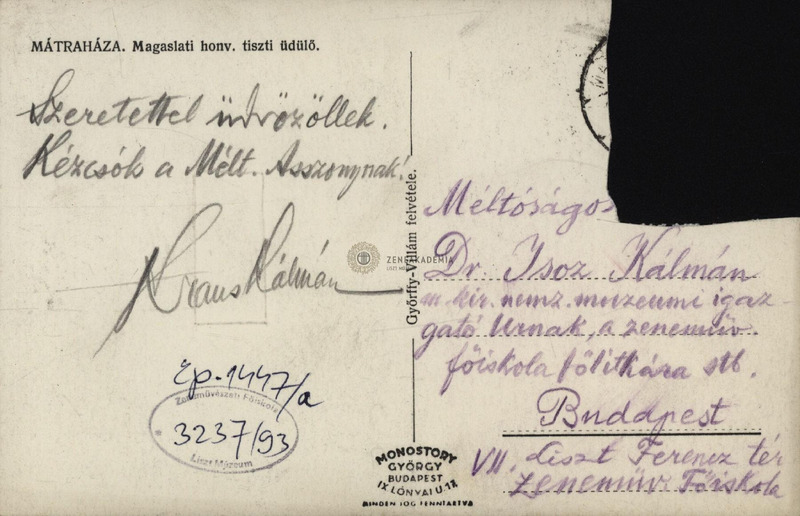 MÁTRAHÁZA. Magaslati honv. tiszti üdülő.
Szeretettel üdvözöllek.
Kézcsók a Mélt. Asszonynak!
Kraus Kálmán
Ep. 1447/a
Zeneművészeti Főiskola
3237/93
Liszt Múzeum
Györffy-Villám felvétele.
ZENEAKADÉMIA
MONOSTORY
GYÖRGY
BUDAPEST
IX LÓNYAI U. 18
MINDEN JOG FENNTARTVA
Méltóságos
Dr. Isoz Kálmán
m. kir. nemz. muzeumi igaz-
gató Urnak, a zeneműv.
főiskola főtitkára stb.
Budapest
VII. Liszt Ferencz tér
Zeneműv. Főiskola